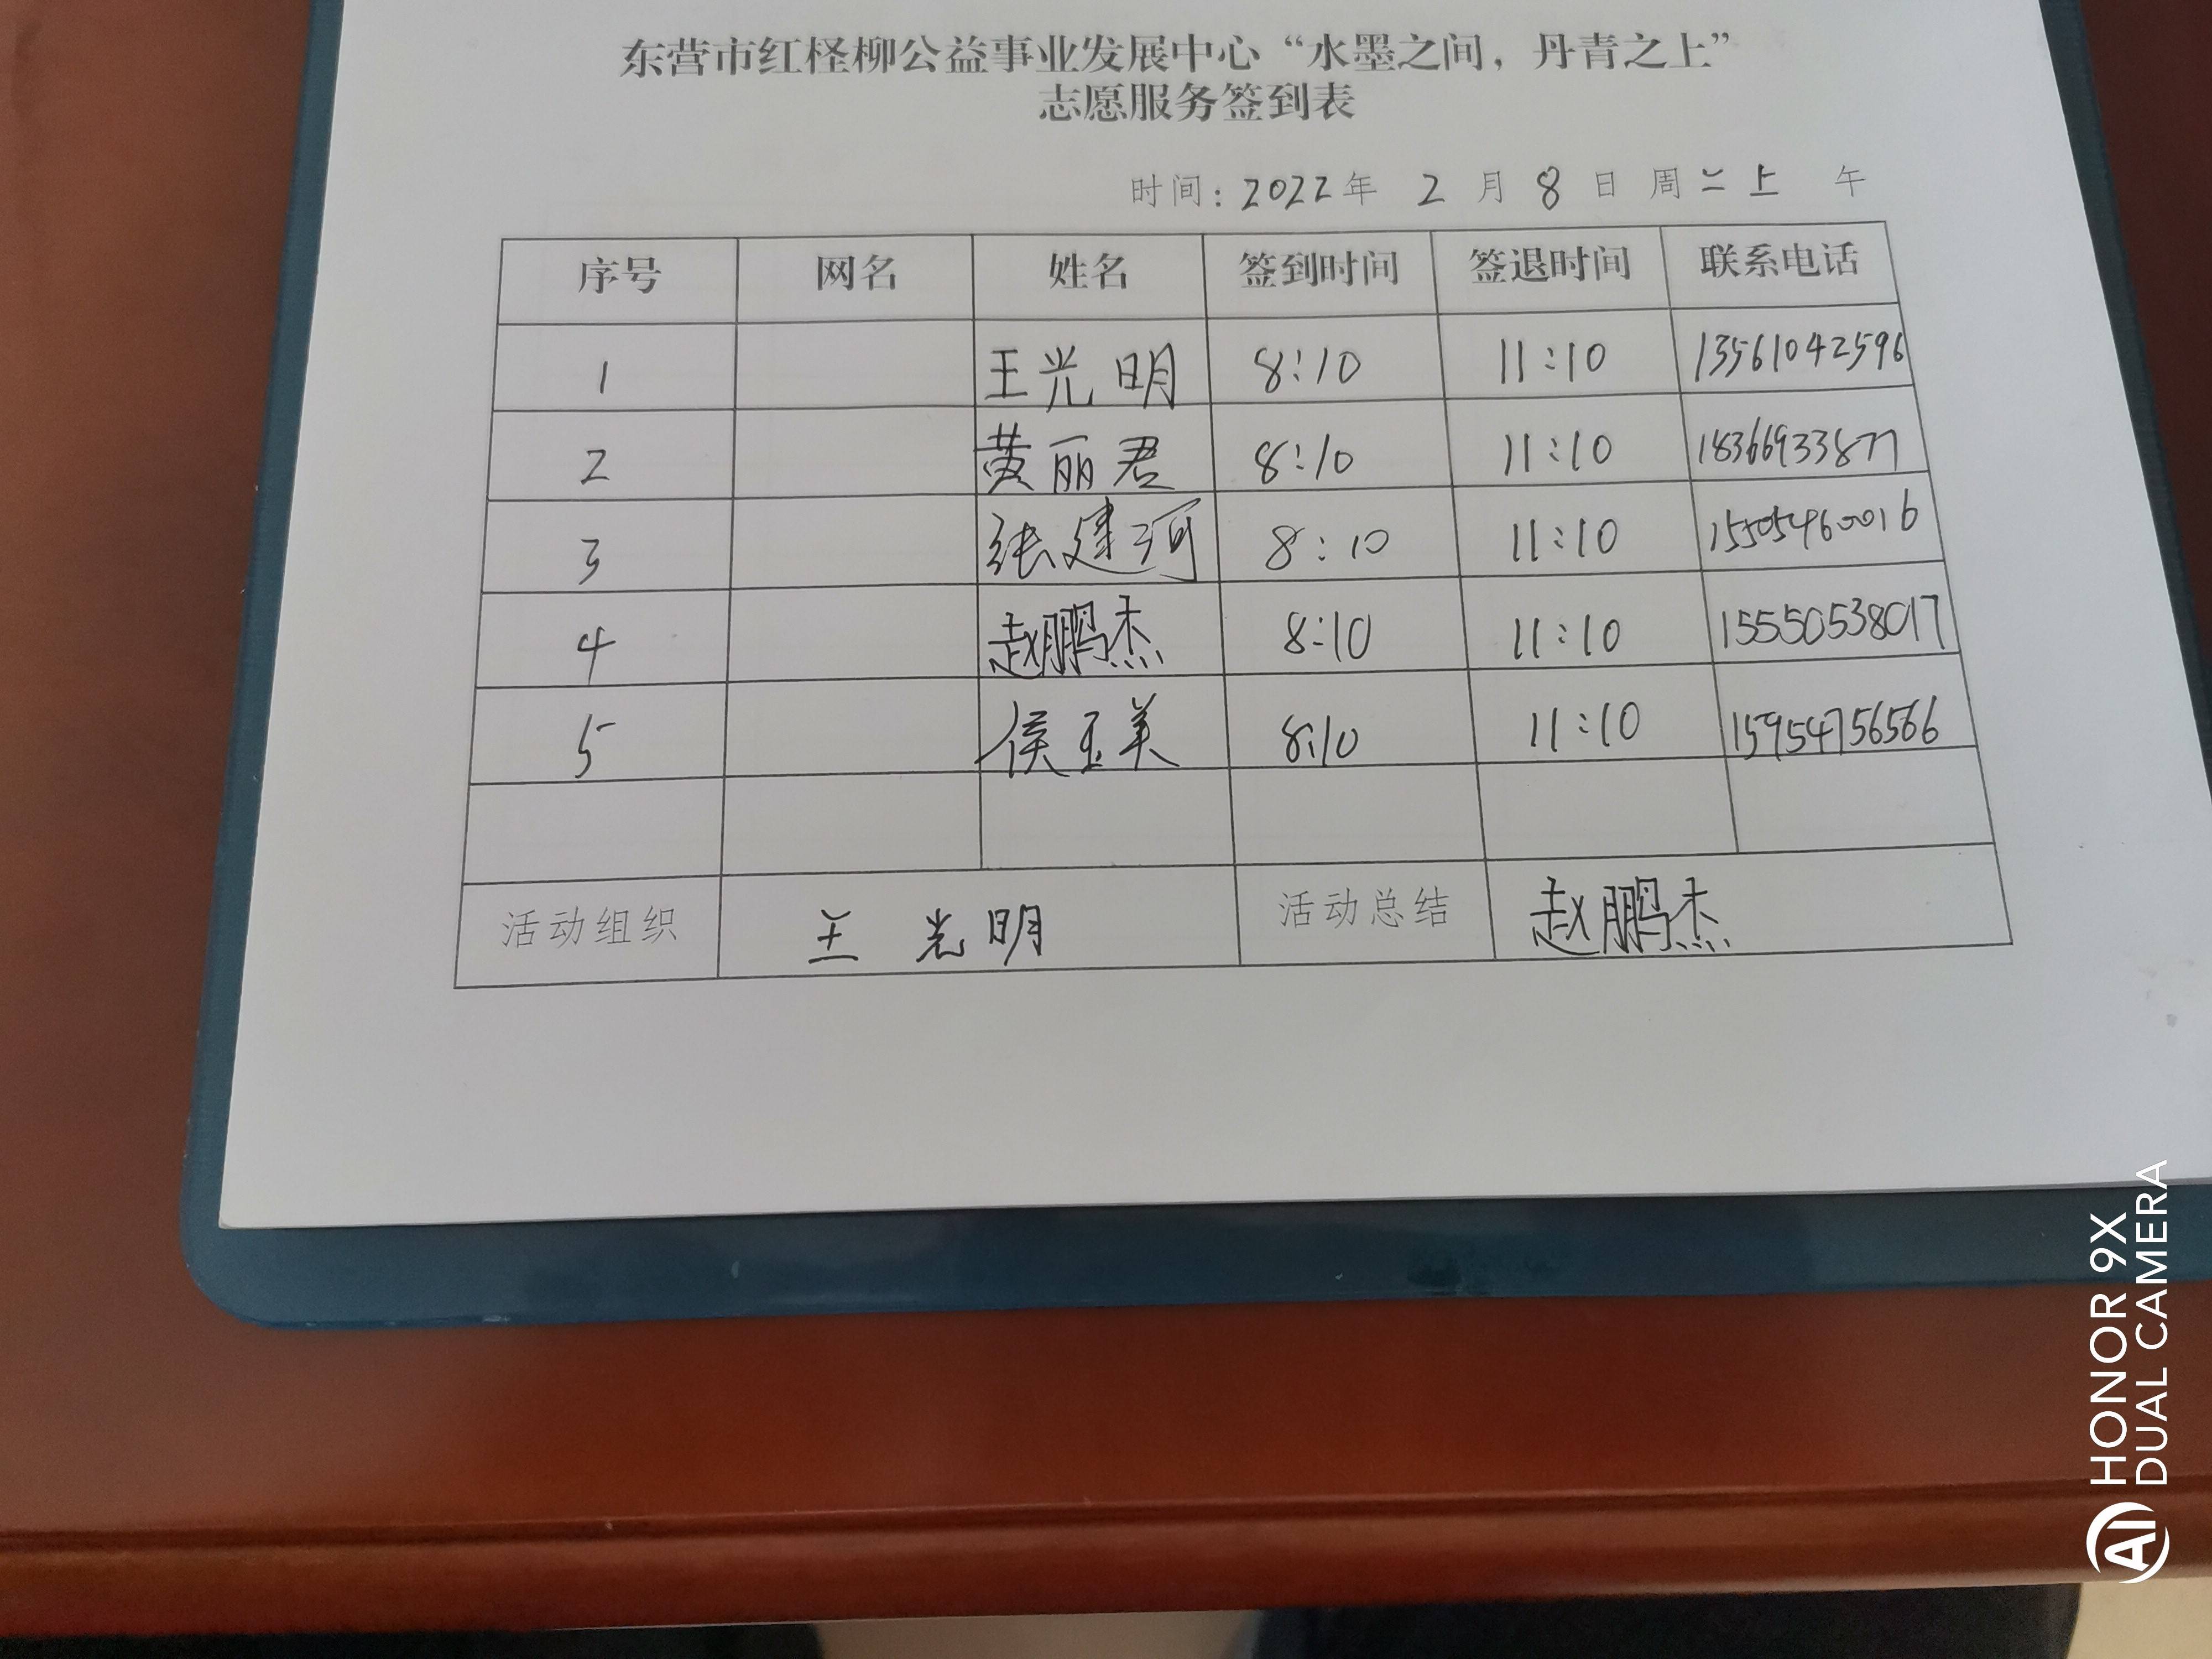 东营市红柽柳公益事业发展中心“水墨之间，丹青之上”
志愿服务签到表
时间：2022年 2 月 8 日 周二上 午
序号 网名 姓名 签到时间 签退时间 联系电话
1 王光明 8:10 11:10 13561042596
2 黄丽君 8:10 11:10 18366933877
3 张建河 8:10 11:10 15505460016
4 赵鹏杰 8:10 11:10 15550538017
5 侯玉美 8:10 11:10 15954756566
活动组织 王光明 活动总结 赵鹏杰
HONOR 9X
DUAL CAMERA
AI